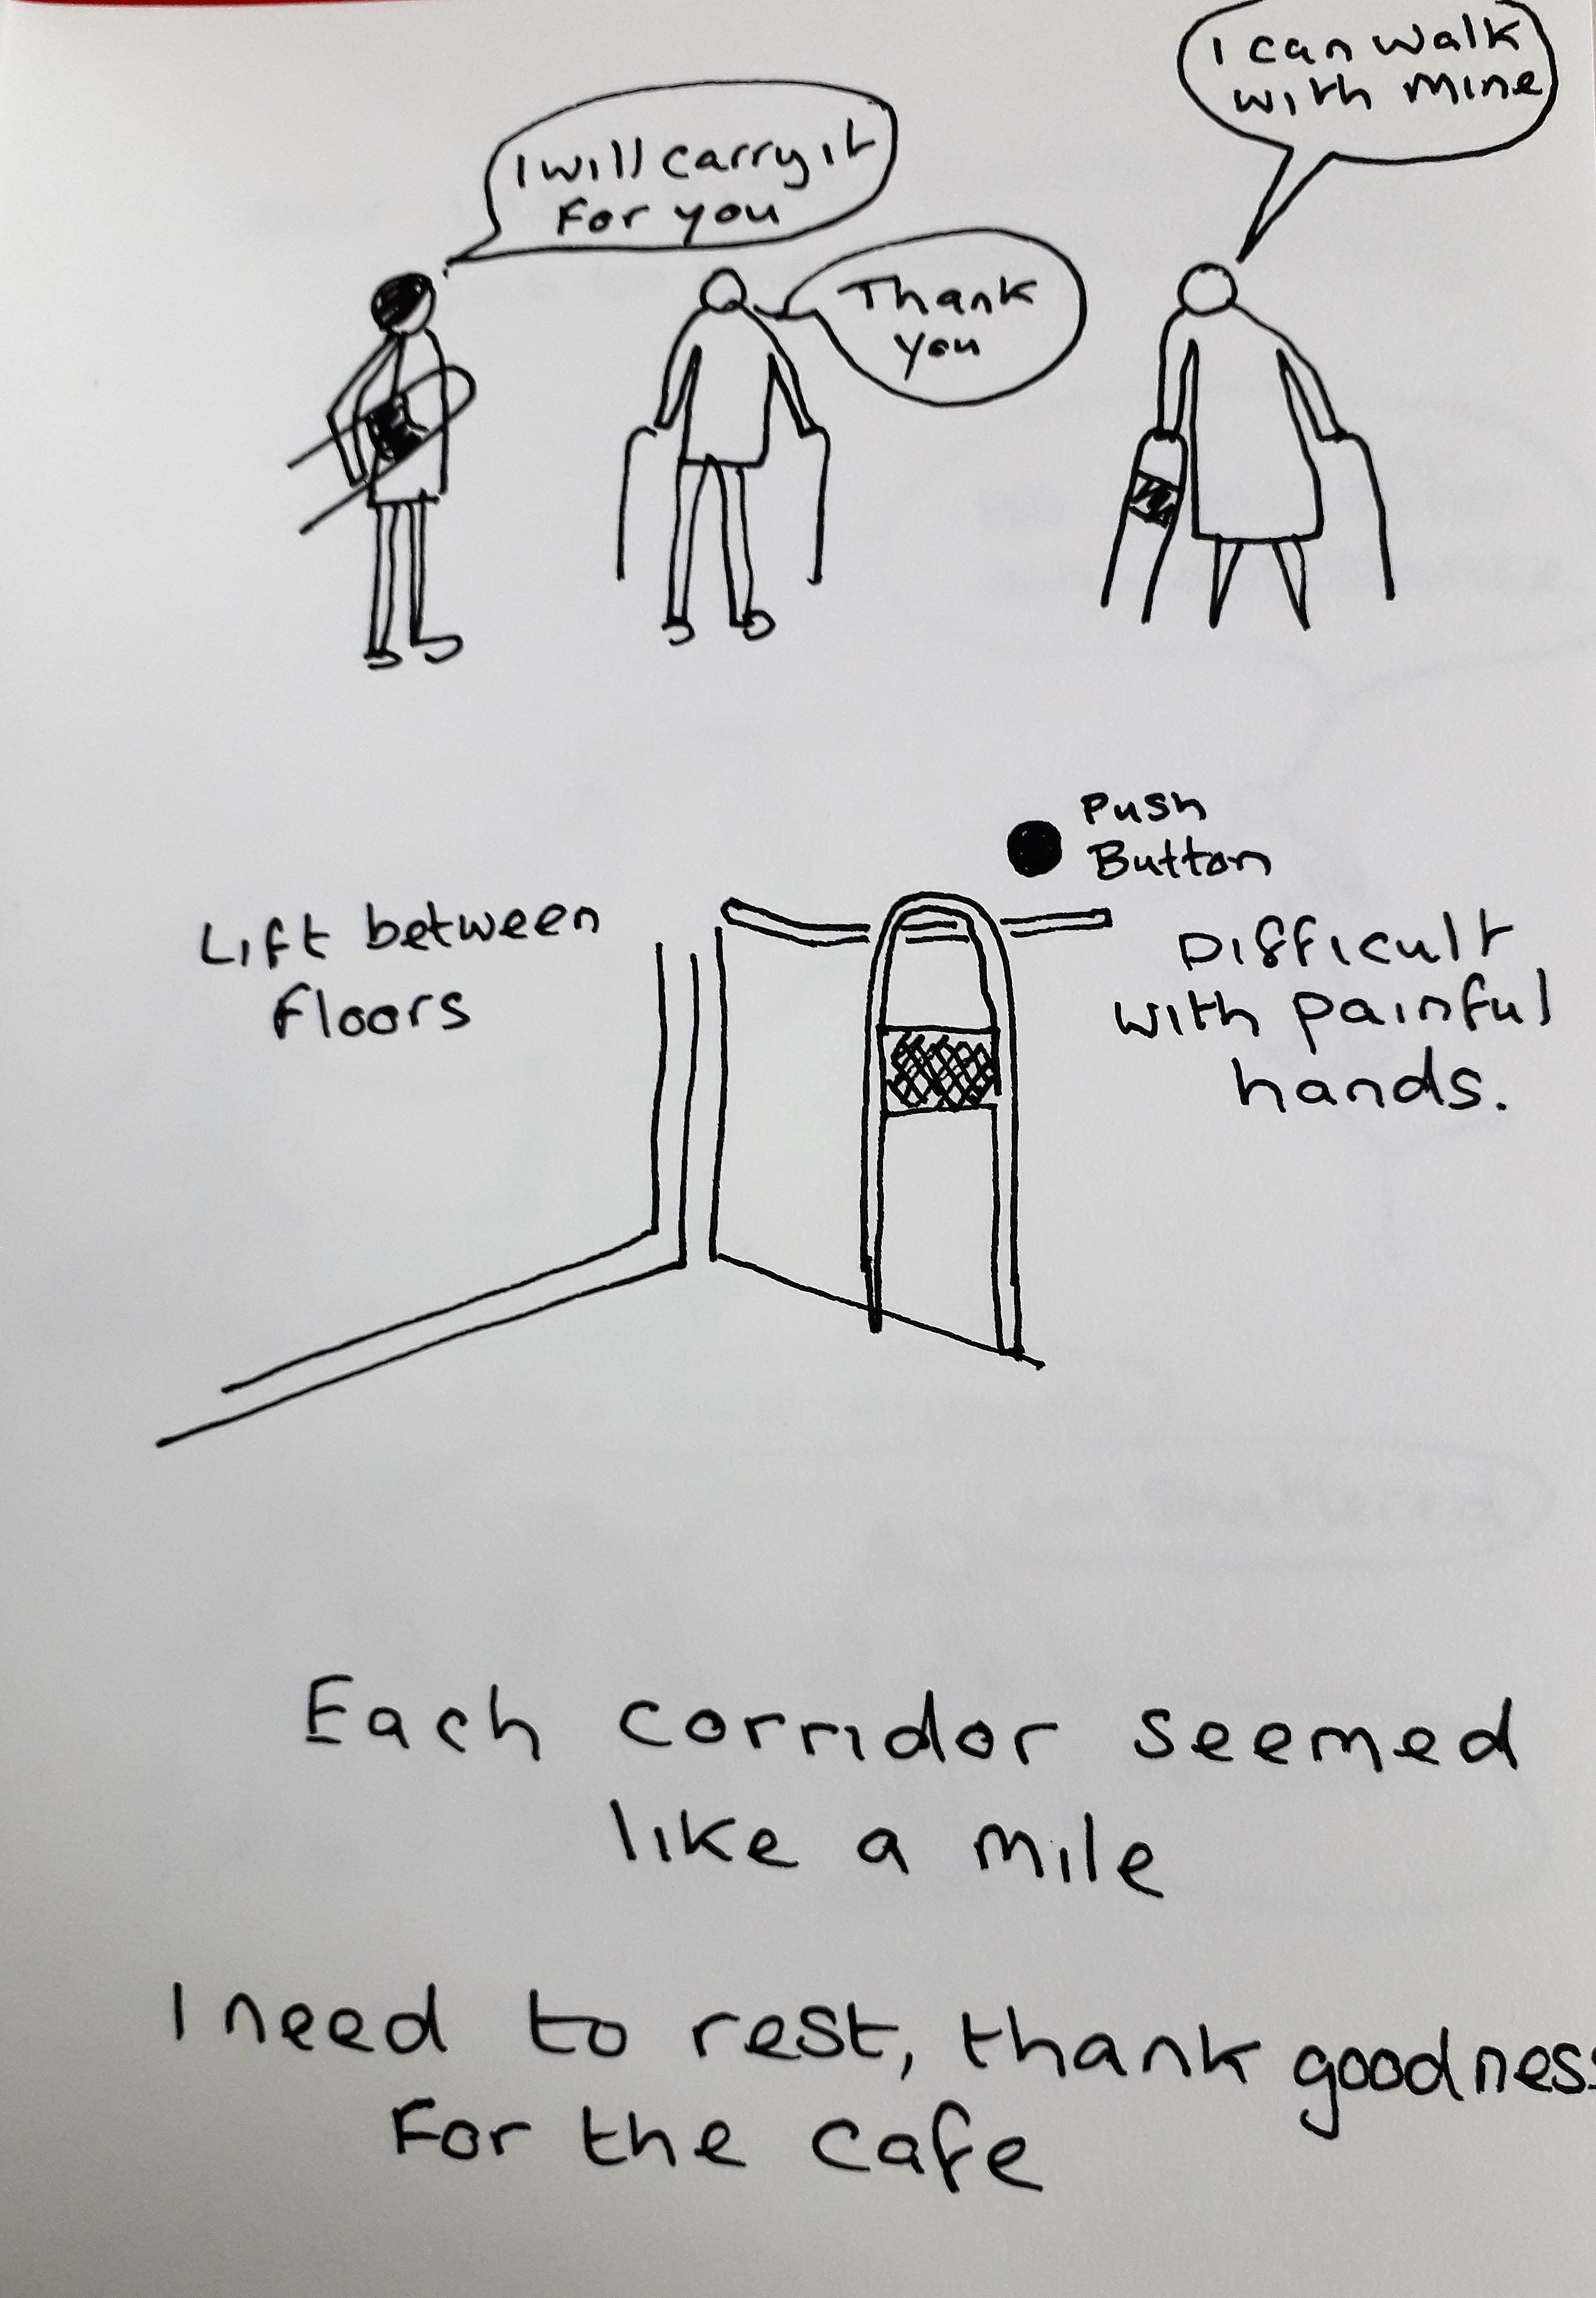 I can walk
with mine
I will carry it
For you
Thank
you
Push
Button
Lift between
floors
Difficult
with painful
hands.
Each corridor seemed
like a mile
I need to rest, thank goodness
For the cafe